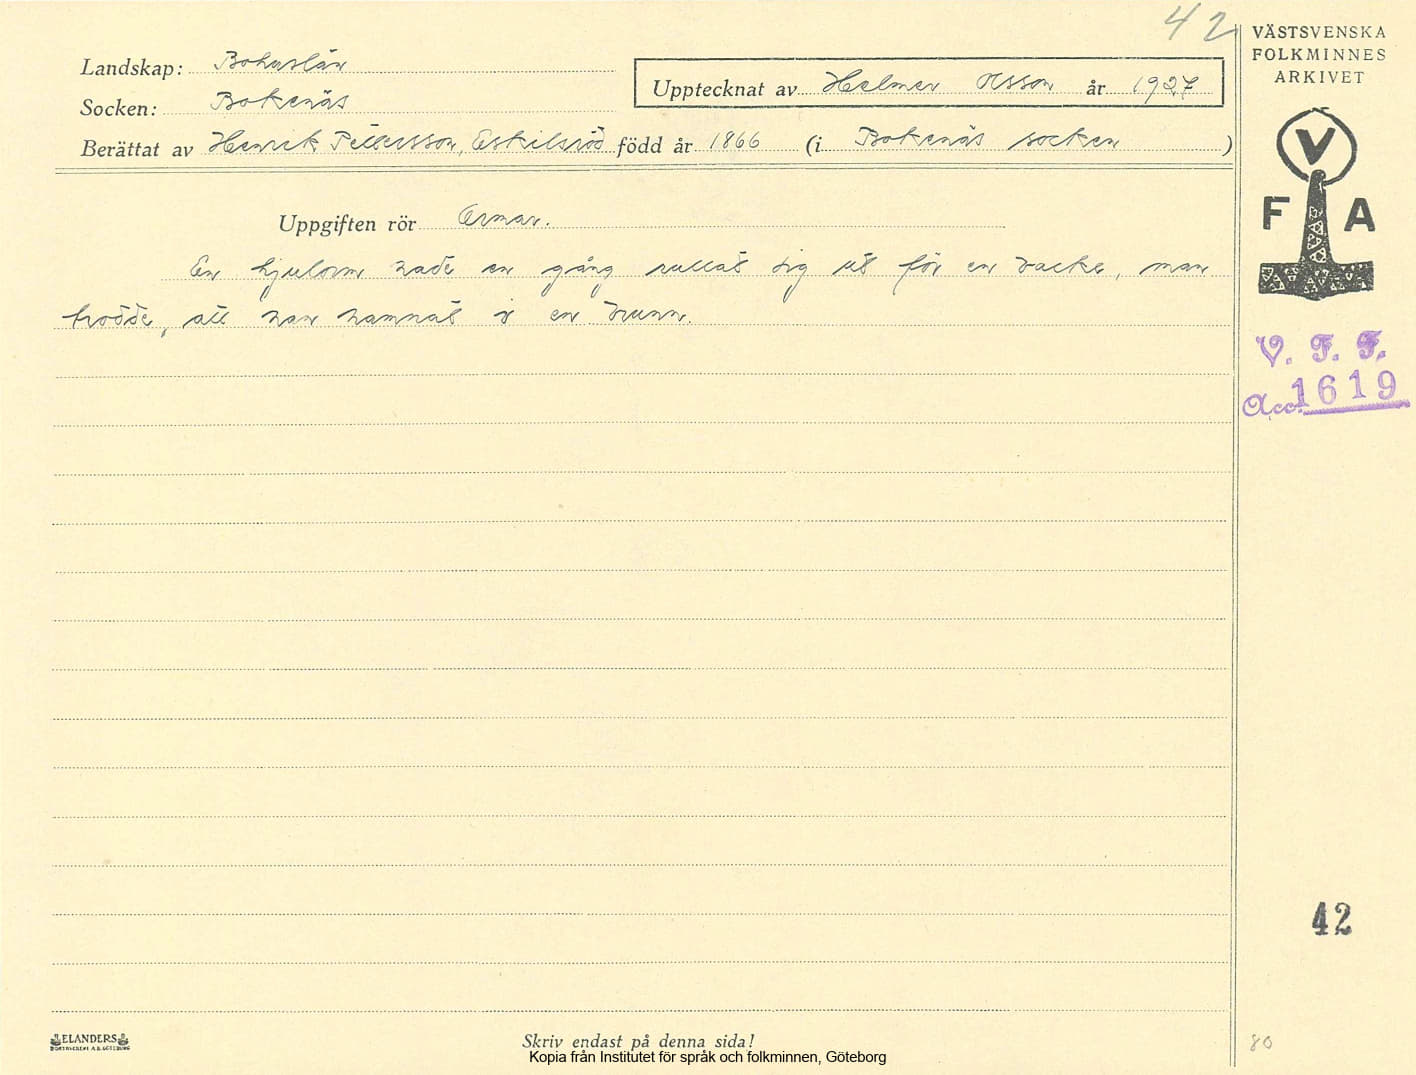 42
VÄSTSVENSKA
FOLKMINNES
ARKIVET
Landskap: Bohuslän
Upptecknat av Helmer Olsson år 1927
Socken: Bokenäs
Berättat av Henrik Pettersson, Eskilsröd född år 1866 (i Bokenäs socken )
V
F A
Uppgiften rör Ormar.
En hjulorm hade en gång rullat sig ut för en backe, man
trodde, att han hamnat i en brunn.
V. F. F.
Acc. 1619
42
ELANDERS
BOKTRYCKERI A.B. GÖTEBORG
Skriv endast på denna sida!
Kopia från Institutet för språk och folkminnen, Göteborg
80